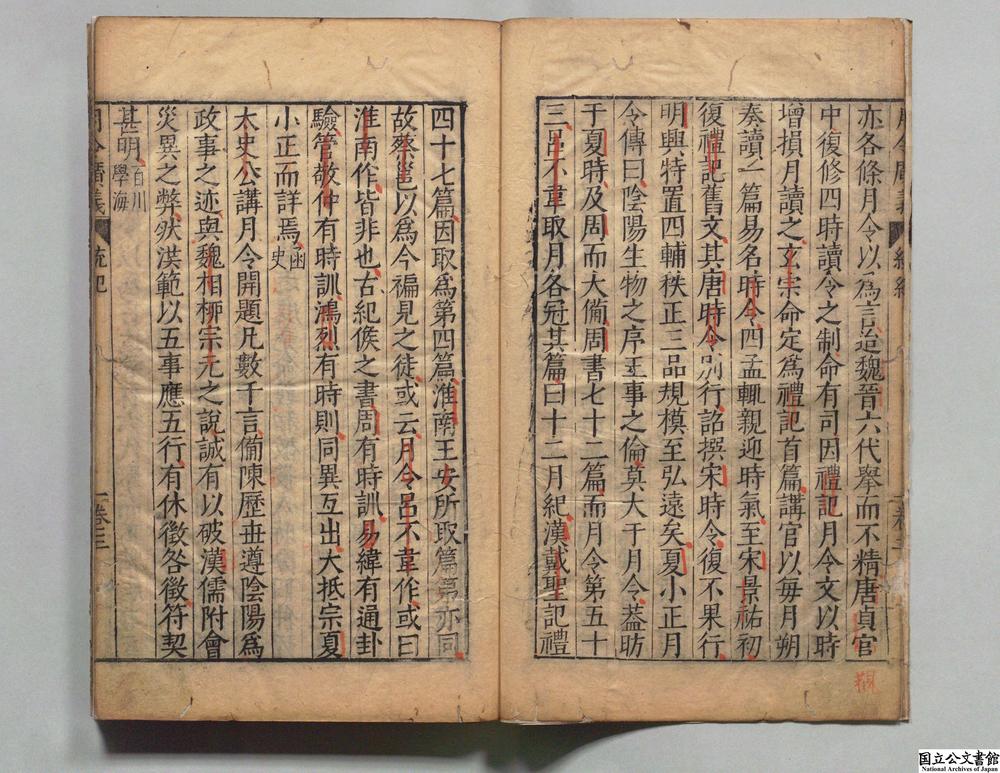 亦各條月令以爲言迨魏晉六代舉而不精唐貞官
中復修四時讀令之制命有司因禮記月令文以時
增損月讀之玄宗命定爲禮記首篇講官以每月朔
奏讀一篇易名時令四孟輒親迎時氣至宋景祐初
復禮記舊文其唐時令別行詔撰宋時令復不果行
明興特置四輔秩正三品規模至弘遠矣夏小正月
令傳曰陰陽生物之序王事之倫莫大于月令葢昉
于夏時及周而大備周書七十二篇而月令第五十
三呂不韋取月各冠其篇曰十二月紀漢戴聖記禮
觀
四十七篇因取爲第四篇淮南王安所取篇第亦同
故蔡邕以爲今褊見之徒或云月令呂不韋作或曰
淮南作皆非也古紀候之書周有時訓易緯有通卦
驗管敬仲有時訓鴻烈有時則同異互出大抵宗夏
小正而詳焉函史
太史公講月令開題凡數千言備陳歷丗遵陰陽爲
政事之迹與魏相栁宗元之說誠有以破漢儒附會
災異之弊然漢範以五事應五行有休徵咎徵符契
甚明百川學海
月令廣義
統紀
卷三
国立公文書館
National Archives of Japan